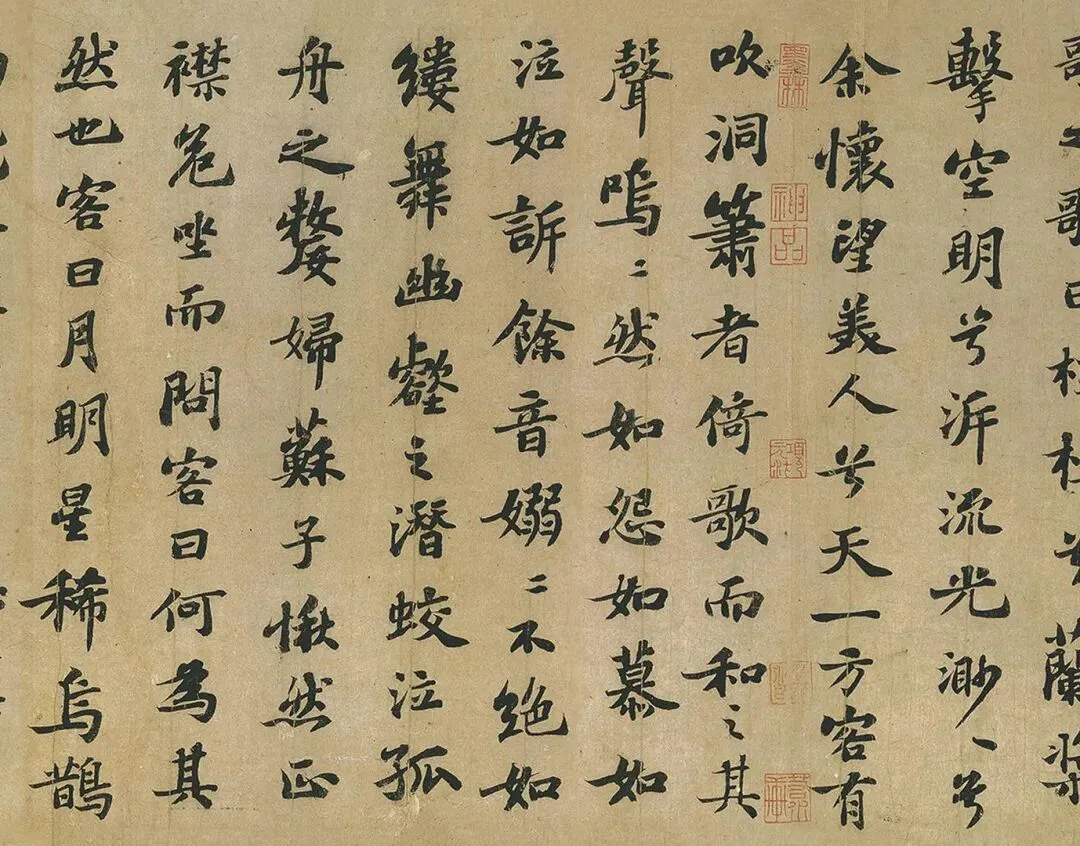 歌之歌曰桂棹兮蘭槳
擊空明兮泝流光渺〻兮
余懷望美人兮天一方客有
吹洞簫者倚歌而和之其
聲嗚〻然如怨如慕如
泣如訴餘音嫋〻不絕如
縷舞幽壑之潛蛟泣孤
舟之嫠婦蘇子愀然正
襟危坐而問客曰何為其
然也客曰月明星稀烏鵲
神品